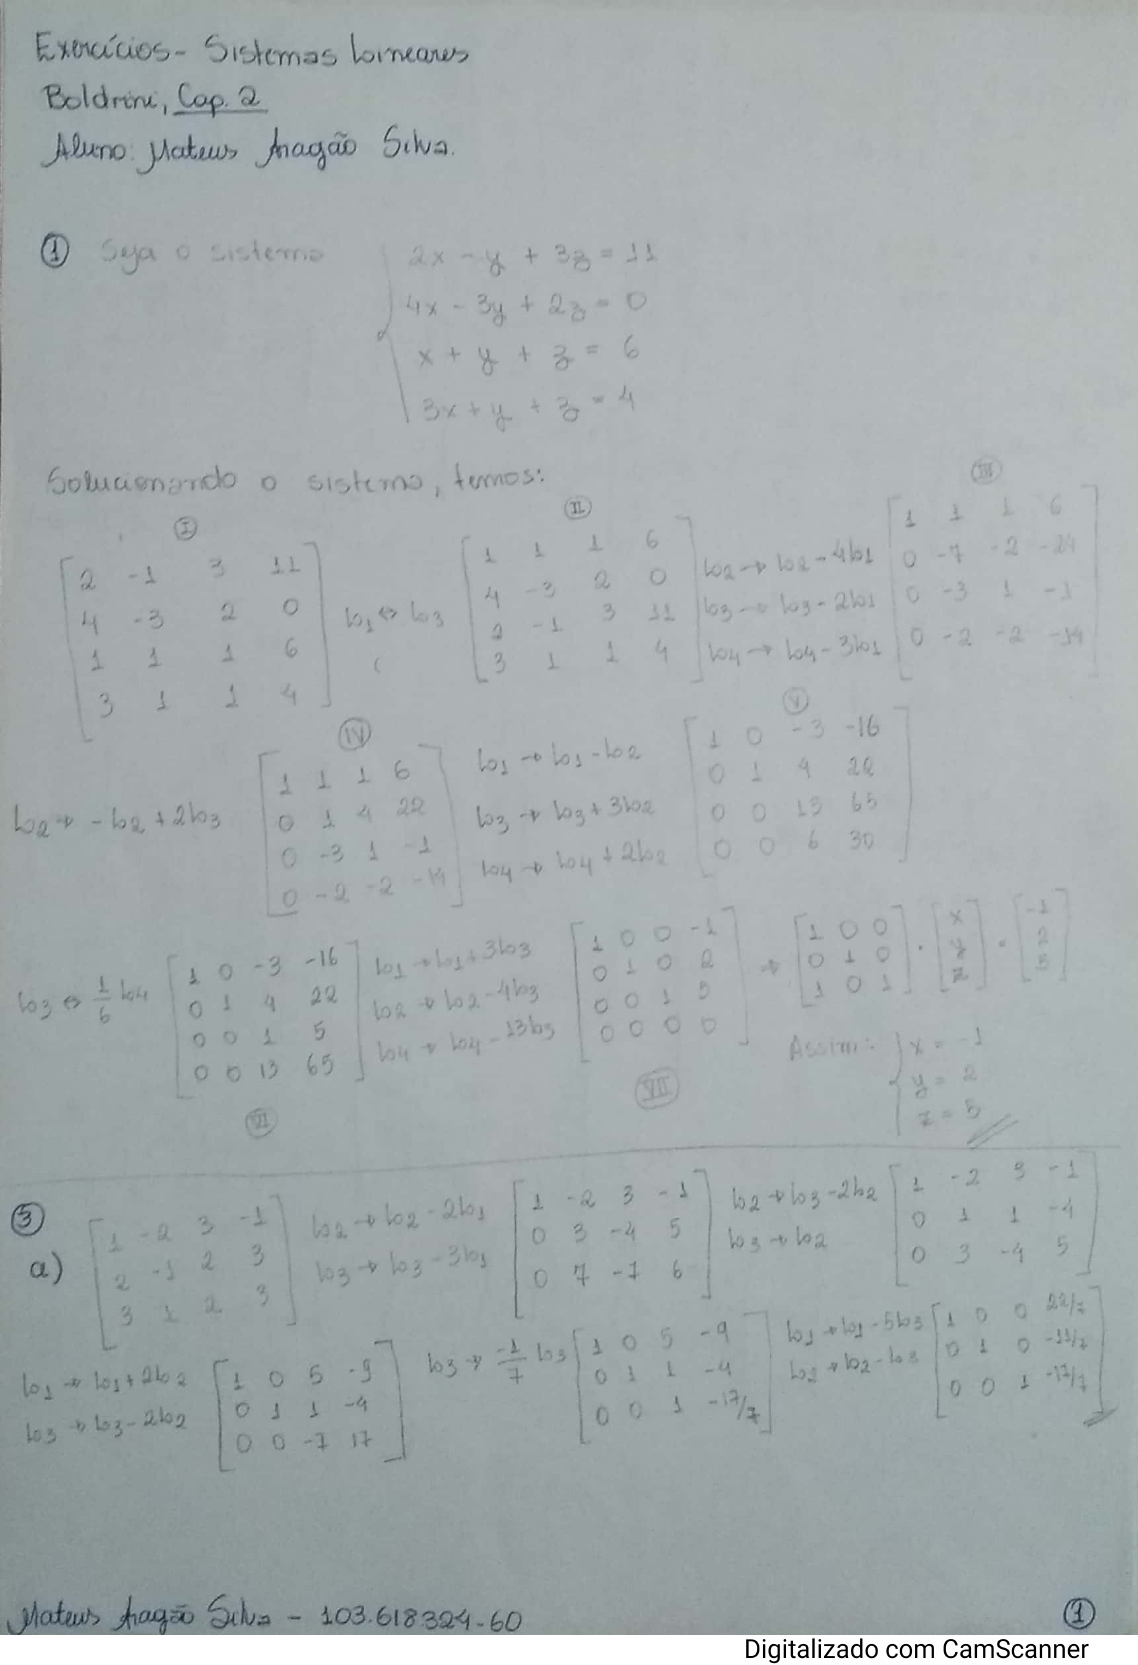 Exercícios - Sistemas Lineares
Boldrini, Cap. 2
Aluno: Mateus Aragão Silva.
① Seja o sistema
2x - y + 3z = 11
4x - 3y + 2z = 0
x + y + z = 6
3x + y + z = 4
Solucionando o sistema, temos:
I
2 -1 3 11
4 -3 2 0
1 1 1 6
3 1 1 4
L1 ↔ L3
II
1 1 1 6
4 -3 2 0
2 -1 3 11
3 1 1 4
L2 → L2 - 4L1
L3 → L3 - 2L1
L4 → L4 - 3L1
III
1 1 1 6
0 -7 -2 -24
0 -3 1 -1
0 -2 -2 -14
L2 → -L2 + 2L3
IV
1 1 1 6
0 1 4 22
0 -3 1 -1
0 -2 -2 -14
L1 → L1 - L2
L3 → L3 + 3L2
L4 → L4 + 2L2
V
1 0 -3 -16
0 1 4 22
0 0 13 65
0 0 6 30
L3 ↔ 1/6 L4
1 0 -3 -16
0 1 4 22
0 0 1 5
0 0 13 65
VI
L1 → L1 + 3L3
L2 → L2 - 4L3
L4 → L4 - 13L3
1 0 0 -1
0 1 0 2
0 0 1 5
0 0 0 0
VII
→
1 0 0
0 1 0
1 0 1
·
x
y
z
=
-1
2
5
Assim:
x = -1
y = 2
z = 5
③
a)
1 -2 3 -1
2 -1 2 3
3 1 2 3
L2 → L2 - 2L1
L3 → L3 - 3L1
1 -2 3 -1
0 3 -4 5
0 7 -7 6
L2 → L3 - 2L2
L3 → L2
1 -2 3 -1
0 1 1 -4
0 3 -4 5
L1 → L1 + 2L2
L3 → L3 - 2L2
1 0 5 -9
0 1 1 -4
0 0 -7 17
L3 → -1/7 L3
1 0 5 -9
0 1 1 -4
0 0 1 -17/7
L1 → L1 - 5L3
L2 → L2 - L3
1 0 0 22/7
0 1 0 -11/7
0 0 1 -17/7
Mateus Aragão Silva - 103.618.324-60
①
Digitalizado com CamScanner